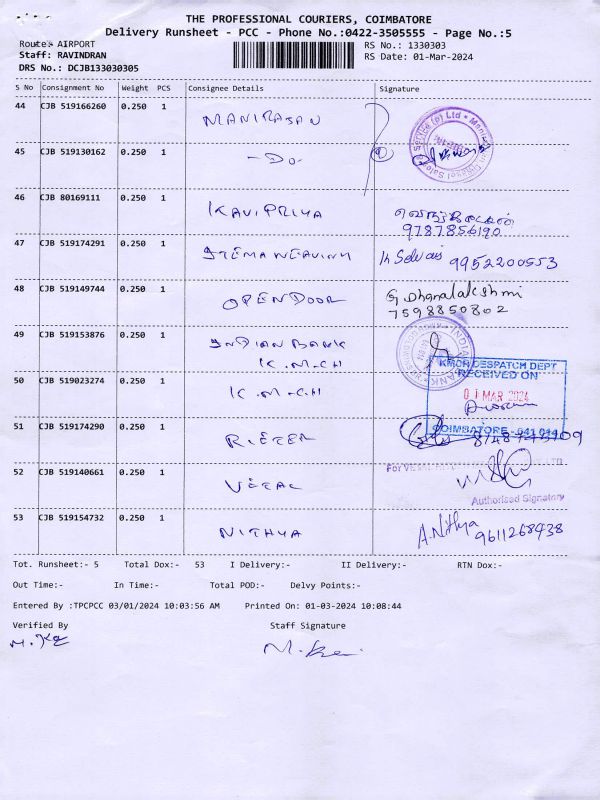 THE PROFESSIONAL COURIERS, COIMBATORE
Delivery Runsheet - PCC - Phone No.:0422-3505555 - Page No.:5
Route:- AIRPORT
RS No.: 1330303
Staff: RAVINDRAN
RS Date: 01-Mar-2024
DRS No.: DCJB133030305
S No Consignment No Weight PCS Consignee Details Signature
44 CJB 519166260 0.250 1 MANIRAJAN
45 CJB 519130162 0.250 1 -Do-
46 CJB 80169111 0.250 1 KAVIPRIYA
9787856190
47 CJB 519174291 0.250 1 9952200553
48 CJB 519149744 0.250 1 OPENDOOR G. Dhanalakshmi
7598850802
49 CJB 519153876 0.250 1 INDIAN BANK
K.M.C.H
50 CJB 519023274 0.250 1 K.M.C.H
KMCH DESPATCH DEPT
RECEIVED ON
01 MAR 2024
COIMBATORE - 641 014
51 CJB 519174290 0.250 1 RIETER
52 CJB 519140661 0.250 1
Authorised Signatory
53 CJB 519154732 0.250 1 NITHYA A. Nithya
9611268438
Tot. Runsheet:- 5 Total Dox:- 53 I Delivery:- II Delivery:- RTN Dox:-
Out Time:- In Time:- Total POD:- Delvy Points:-
Entered By :TPCPCC 03/01/2024 10:03:56 AM Printed On: 01-03-2024 10:08:44
Verified By Staff Signature